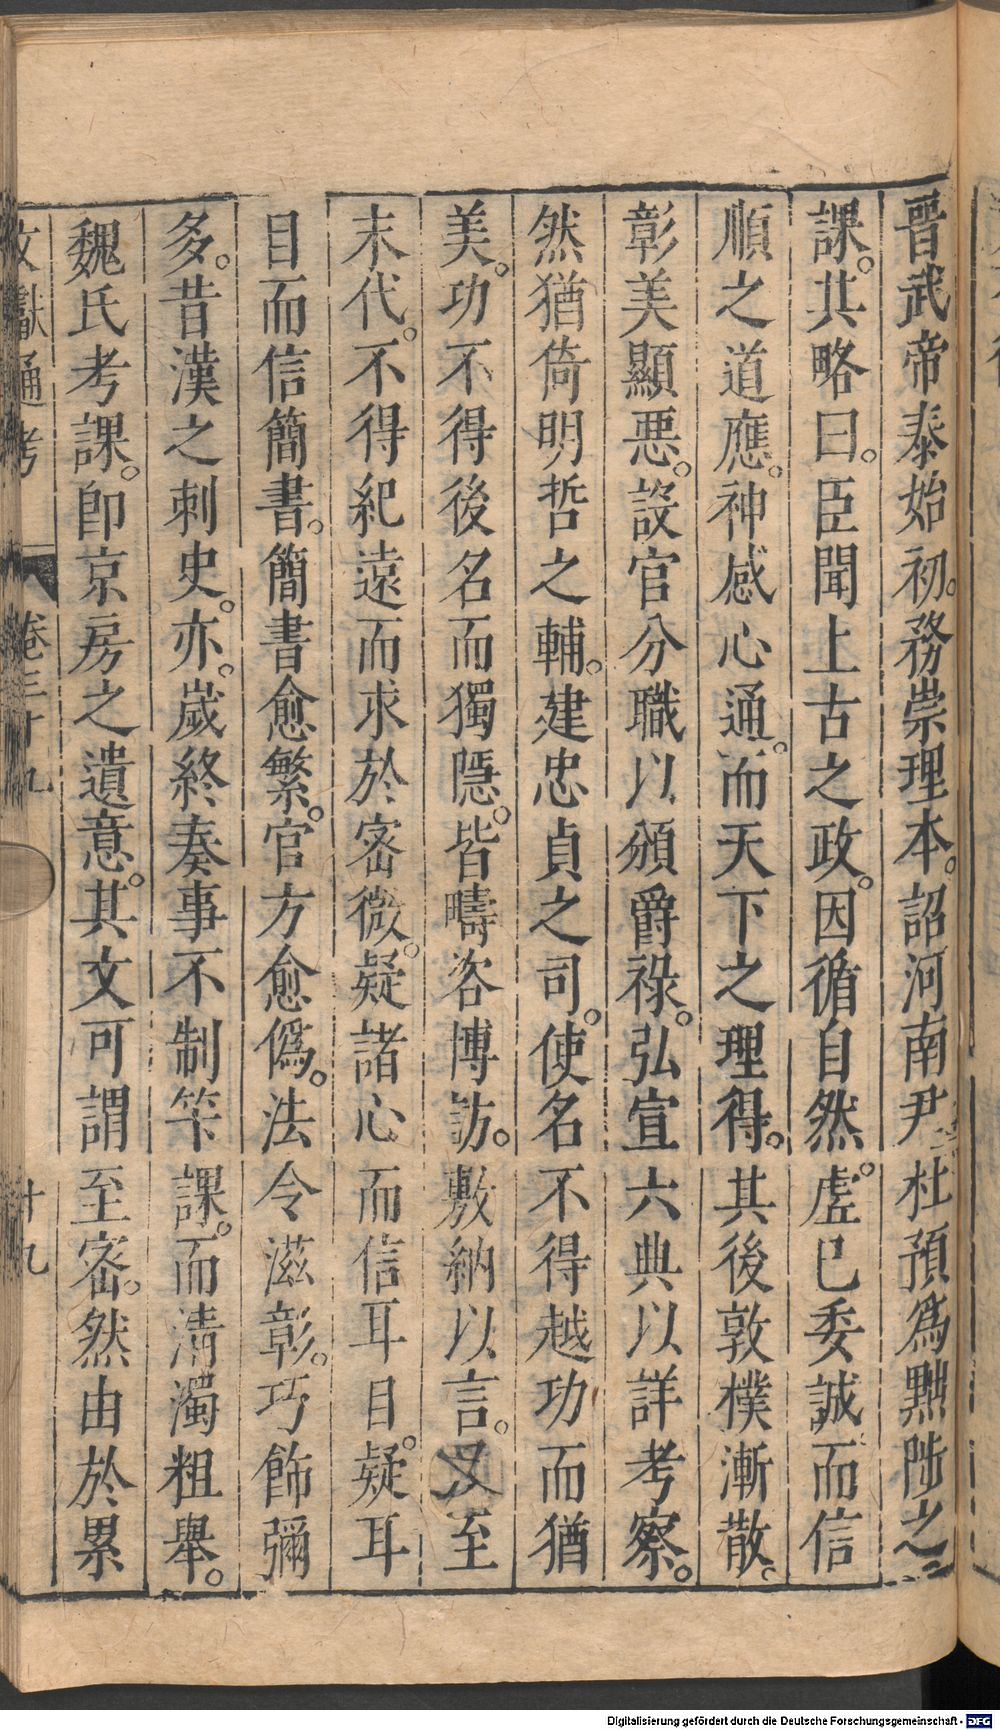 晋武帝泰始初。務崇理本。詔河南尹杜預爲黜陟之
課。其略曰。臣聞上古之政。因循自然。虛已委誠而信
順之道應。神感心通。而天下之理得。其後敦樸漸散。
彰美顯惡。設官分職以頒爵祿。弘宣六典以詳考察。
然猶倚明哲之輔。建忠貞之司。使名不得越功而猶
美。功不得後名而獨隱。皆疇咨博訪。敷納以言。又至
末代。不得紀遠而求於密微。疑諸心而信耳目。疑耳
目而信簡書。簡書愈繁。官方愈僞。法令滋彰。巧飾彌
多。昔漢之刺史。亦。嵗終奏事不制筭課。而清濁粗舉。
魏氏考課。卽京房之遺意。其文可謂至密。然由於累
文獻通考 卷三十九 十九
Digitalisierung gefördert durch die Deutsche Forschungsgemeinschaft - DFG